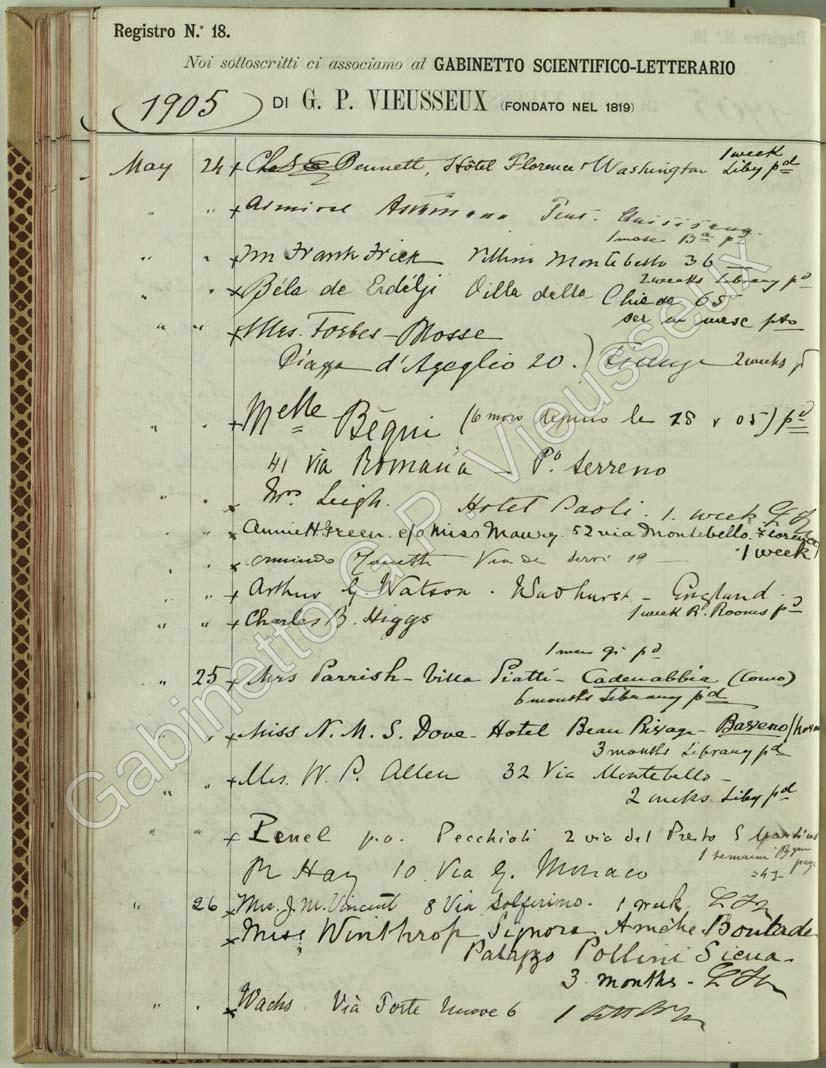 Registro N.° 18.
Noi sottoscritti ci associamo al GABINETTO SCIENTIFICO-LETTERARIO
1905 DI G. P. VIEUSSEUX (FONDATO NEL 1819)
May 24 x Bennett, Hôtel Florence & Washington 1 week Liby pd
" x Admiral Pens.
1 mese pd
" " x Mr Frank Frick Villino Montebello 36
2 weeks Library pd
" " x Béla de Erdélji Villa della Chiesa 65
per un mese pto
" " x Mrs. Forbes-Mosse
Piazza d'Azeglio 20.) Firenze 2 weeks
" " x Melle Bégni (6 mois depuis le 18 v 05) pd
41 Via Romana - Po terreno
" " x Mrs Leigh. Hotel Paoli. 1. week
x Annie H Green. c/o Miss Maury. 52 via Montebello. Florence
1 week
" . Via de Servi 19 —
" " x Arthur G Watson. Wadhurst - England.
" " x Charles B. Higgs 1 week R. Rooms pd
pd
" 25 x Mrs Parrish - Villa Piatti - Cadenabbia (Como)
6 months Library pd
" " x Miss N. M. S. Dove - Hotel Beau Rivage - Baveno
3 months Library pd
" " x Mrs. W. P. Allen 32 Via Montebello -
2 weeks Liby pd
" " x Penel p.a. Pecchioli 2 via del Presto S
1 semaine
R Hay 10 Via G. Monaco
" 26 x Mrs. J. M. Vincent 8 Via Solferino. 1 week
x Miss Winthrop Signora
Palazzo Pollini Siena.
3 months -
" " x Wachs Via Forte nuove 6 1
Gabinetto G.P. Vieusseux